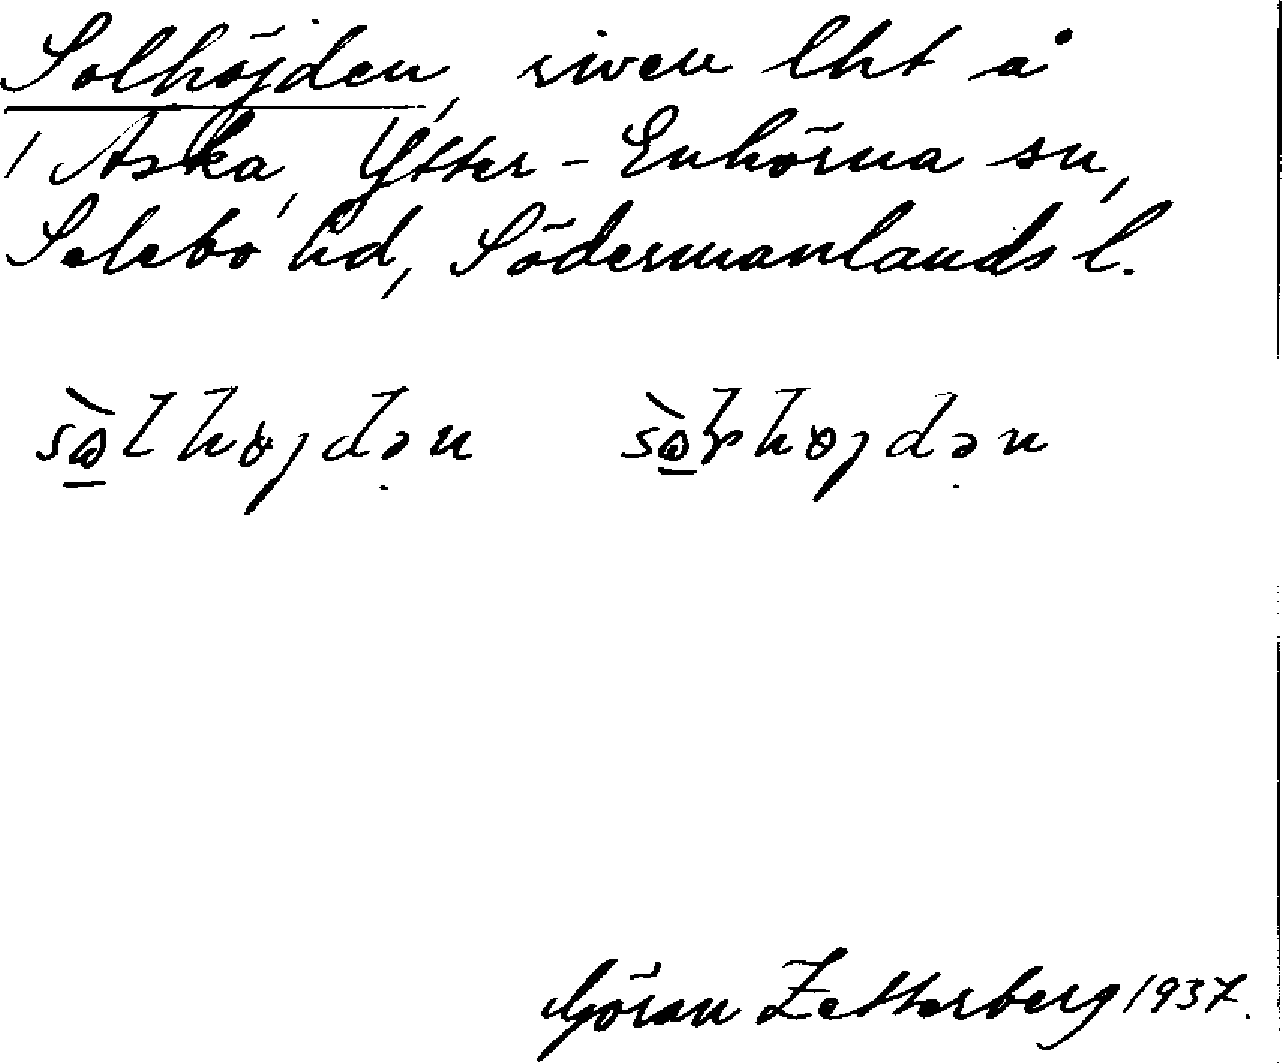 Solhöjden, riven lht å
/ Aska, Ytter-Enhörna sn,
Selebo hd, Södermanlands l.
Göran Zetterberg 1937.